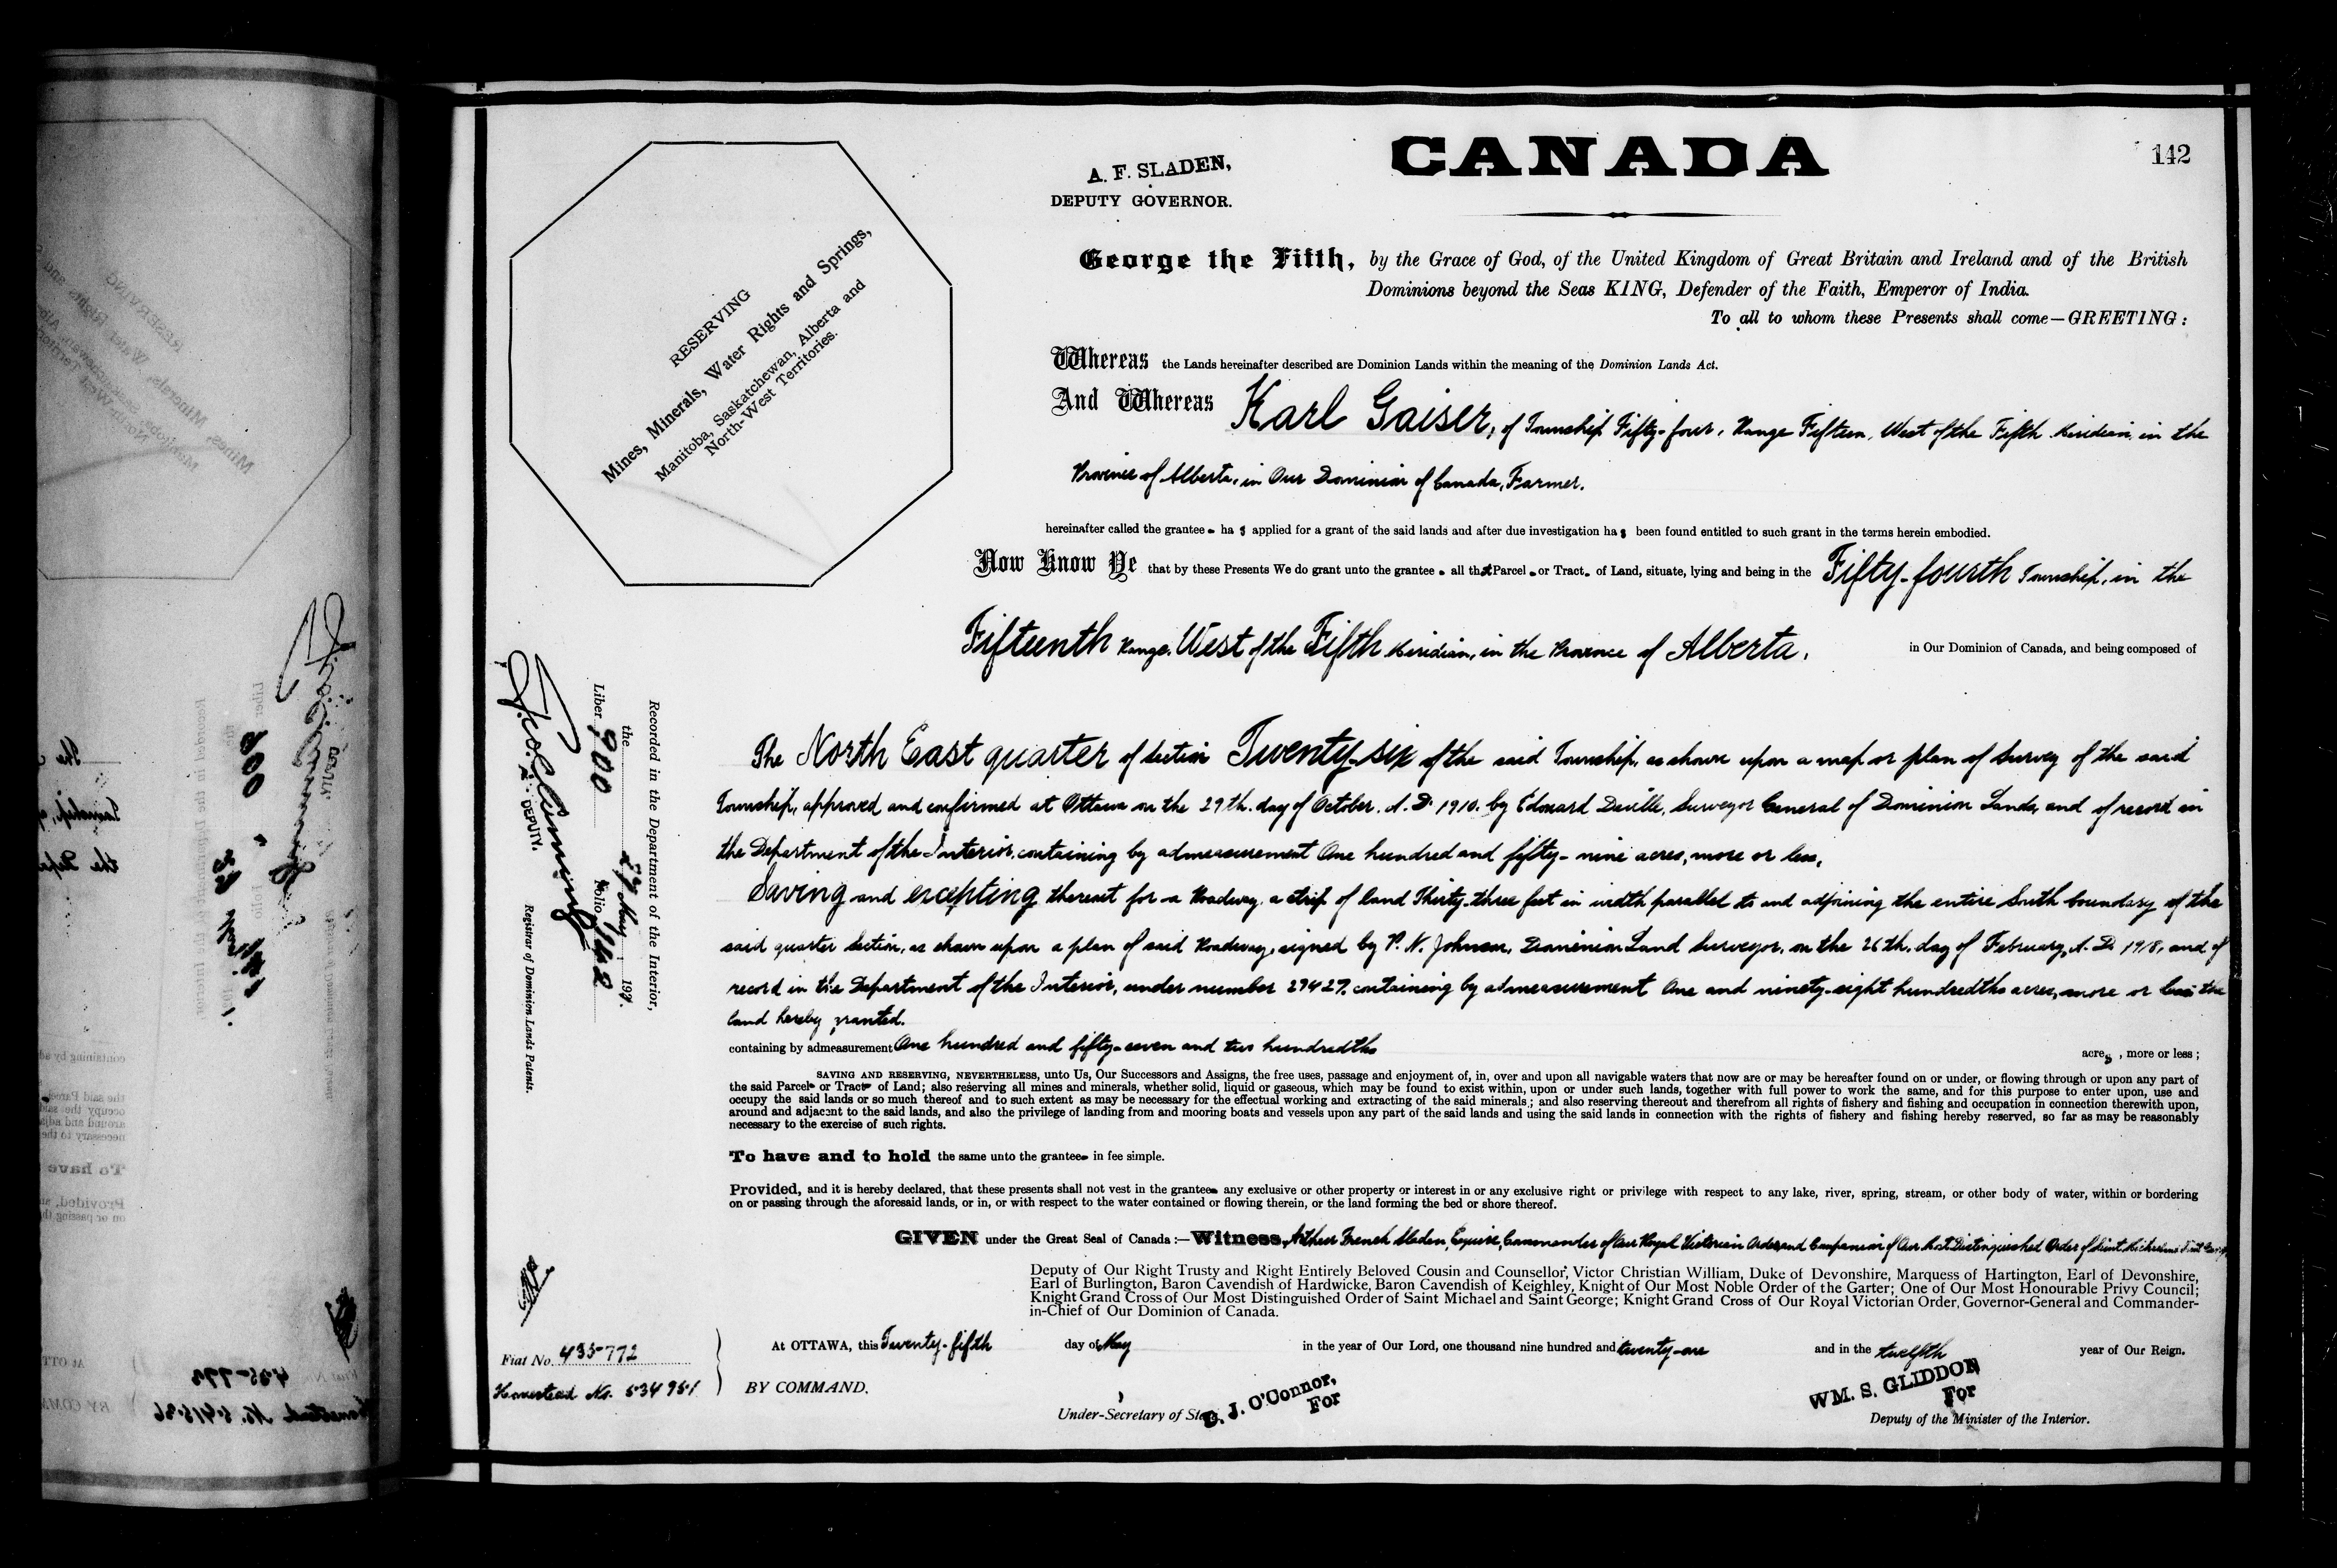 CANADA
142
A. F. SLADEN,
DEPUTY GOVERNOR.
RESERVING
Mines, Minerals, Water Rights and Springs,
Manitoba, Saskatchewan, Alberta and
North-West Territories.
George the Fifth, by the Grace of God, of the United Kingdom of Great Britain and Ireland and of the British
Dominions beyond the Seas KING, Defender of the Faith, Emperor of India.
To all to whom these Presents shall come—GREETING:
Whereas the Lands hereinafter described are Dominion Lands within the meaning of the Dominion Lands Act.
And Whereas Karl Gaiser, of Township Fifty-four, Range Fifteen, West of the Fifth Meridian, in the
Province of Alberta, in Our Dominion of Canada, Farmer.
hereinafter called the grantee has applied for a grant of the said lands and after due investigation has been found entitled to such grant in the terms herein embodied.
Now Know Ye that by these Presents We do grant unto the grantee all that Parcel or Tract of Land, situate, lying and being in the Fifty-fourth Township, in the
Fifteenth Range, West of the Fifth Meridian, in the Province of Alberta, in Our Dominion of Canada, and being composed of
The North East quarter of Section Twenty-six of the said Township, as shown upon a map or plan of Survey of the said
Township, approved and confirmed at Ottawa on the 29th. day of October, A. D. 1910, by Edouard Deville, Surveyor General of Dominion Lands, and of record in
the Department of the Interior, containing by admeasurement One hundred and fifty-nine acres, more or less,
Saving and excepting thereout for a Roadway, a strip of land Thirty-three feet in width parallel to and adjoining the entire South boundary of the
said quarter Section, as shown upon a plan of said Roadway, signed by P. N. Johnson, Dominion Land Surveyor, on the 26th. day of February, A. D. 1918, and of
record in the Department of the Interior, under number 27427, containing by admeasurement One and ninety-eight hundredths acres, more or less: the
land hereby granted.
containing by admeasurement One hundred and fifty-seven and two hundredths acres, more or less;
SAVING AND RESERVING, NEVERTHELESS, unto Us, Our Successors and Assigns, the free uses, passage and enjoyment of, in, over and upon all navigable waters that now are or may be hereafter found on or under, or flowing through or upon any part of
the said Parcel or Tract of Land; also reserving all mines and minerals, whether solid, liquid or gaseous, which may be found to exist within, upon or under such lands, together with full power to work the same, and for this purpose to enter upon, use and
occupy the said lands or so much thereof and to such extent as may be necessary for the effectual working and extracting of the said minerals; and also reserving thereout and therefrom all rights of fishery and fishing and occupation in connection therewith upon,
around and adjacent to the said lands, and also the privilege of landing from and mooring boats and vessels upon any part of the said lands and using the said lands in connection with the rights of fishery and fishing hereby reserved, so far as may be reasonably
necessary to the exercise of such rights.
To have and to hold the same unto the grantee in fee simple.
Provided, and it is hereby declared, that these presents shall not vest in the grantee any exclusive or other property or interest in or any exclusive right or privilege with respect to any lake, river, spring, stream, or other body of water, within or bordering
on or passing through the aforesaid lands, or in, or with respect to the water contained or flowing therein, or the land forming the bed or shore thereof.
GIVEN under the Great Seal of Canada:—Witness, Arthur French Sladen, Esquire, Commander of Our Royal Victorian Order, and Companion of Our Most Distinguished Order of Saint Michael and Saint George,
Deputy of Our Right Trusty and Right Entirely Beloved Cousin and Counsellor, Victor Christian William, Duke of Devonshire, Marquess of Hartington, Earl of Devonshire,
Earl of Burlington, Baron Cavendish of Hardwicke, Baron Cavendish of Keighley, Knight of Our Most Noble Order of the Garter; One of Our Most Honourable Privy Council;
Knight Grand Cross of Our Most Distinguished Order of Saint Michael and Saint George; Knight Grand Cross of Our Royal Victorian Order, Governor-General and Commander-
in-Chief of Our Dominion of Canada.
At OTTAWA, this Twenty-fifth day of May in the year of Our Lord, one thousand nine hundred and twenty-one and in the twelfth year of Our Reign.
BY COMMAND.
D. J. O'Connor,
For
Under-Secretary of State.
WM. S. GLIDDON
For
Deputy of the Minister of the Interior.
Fiat No. 435772
Homestead No. 534951
Recorded in the Department of the Interior,
the 27 May 192
Liber 900 Folio 142
DEPUTY.
Registrar of Dominion Lands Patents.